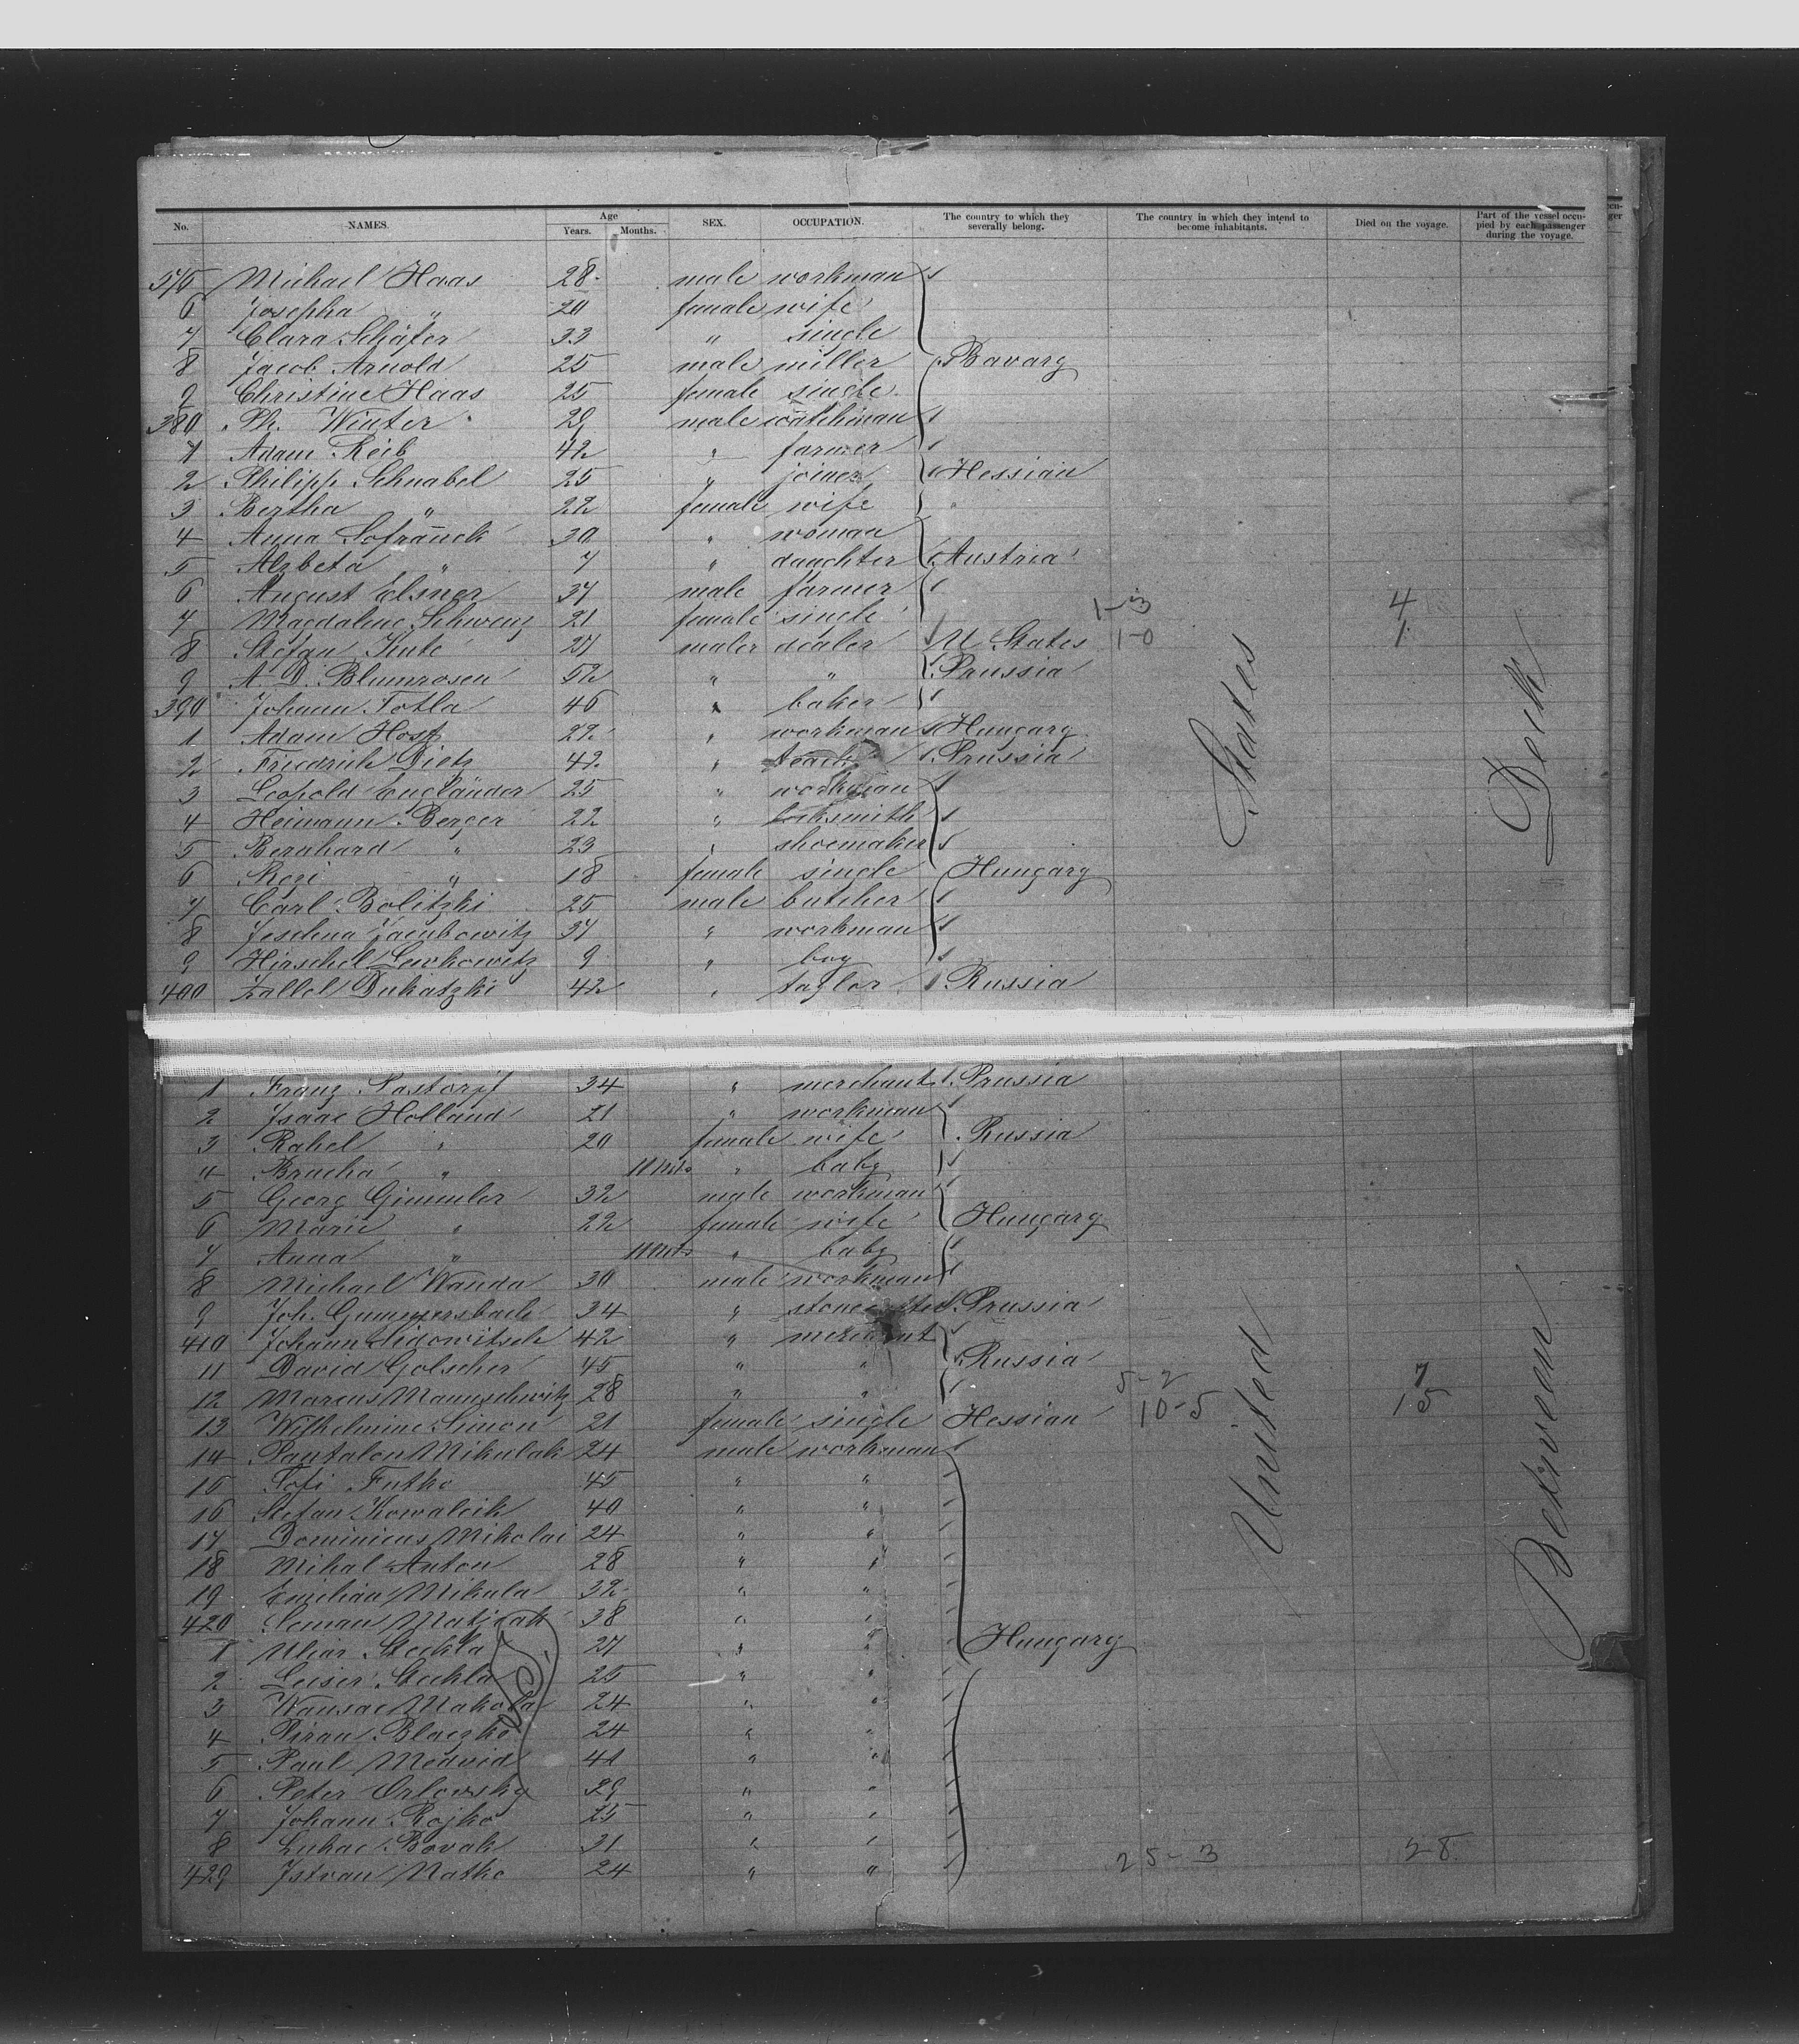 No. NAMES. Age Years. Months. SEX. OCCUPATION. The country to which they severally belong. The country in which they intend to become inhabitants. Died on the voyage. Part of the vessel occupied by each passenger during the voyage.
375 Michael Haas 28 male workman
6 Josepha " 20 female wife
7 Clara Schäfer 33 " single
8 Jacob Arnold 25 male miller Bavary
9 Christine Haas 25 female single
380 Ph. Winter 29 male watchman
1 Adam Reib 42 " farmer
2 Philipp Schnabel 25 " joiner Hessian
3 Bertha " 22 female wife "
4 Anna Sofranck 30 " woman
5 Alzbeta " 7 " daughter Austria
6 August Elsner 37 male farmer
7 Magdalene Schwenz 21 female single 1-3 4
8 Stefan Kute 21 male dealer U States 1-0 1
9 A. D. Blumrosen 52 " " Prussia
390 Johann Totla 46 " baker
1 Adam Host 22 " workman Hungary
2 Friedrich Dietz 42 " Prussia
3 Leopold Engländer 25 " workman
4 Heimann Berger 22 " locksmith
5 Bernhard " 23 " shoemaker
6 Rezi " 18 female single Hungary
7 Carl Bolitzki 25 male butcher
8 Jeschua Jacubowitz 37 " workman
9 Hirschel Lewkowitz 9 " boy
400 Zallel Dukatzki 42 " taylor Russia
1 Franz Pastorff 34 " merchant Prussia
2 Isaac Holland 21 " workman
3 Rahel " 20 female wife Russia
4 Brucha " 11 Mts " baby
5 Georg Gimmler 32 male workman
6 Marie " 22 female wife Hungary
7 Anna " 11 Mts " baby
8 Michael Wanda 30 male workman
9 Joh. Gummersbach 34 " Prussia
410 Johann Sidowitsch 42 " merchant
11 David Golscher 45 " " Russia
12 Marcus Mannschwitz 28 " " 5-2 7
13 Wilhelmine Simon 21 female single Hessian 10-5 15
14 Pantalon Mikulak 24 male workman
15 Tofi Futko 45 " "
16 Stefan Kowalcik 40 " "
17 Dominicus Mikolai 24 " "
18 Mihal Anton 28 " "
19 Emilian Mikula 32 " "
420 Seman Matjiak 38 " "
1 Uliar Stechla 27 " " Hungary
2 Leiser Stechla 25 " "
3 Wansac Makola 24 " "
4 Piran Blaczko 24 " "
5 Paul Medvid 41 " "
6 Peter Orlowsky 29 " "
7 Johann Rojko 25 " "
8 Lukac Bovak 31 " "
429 Istvan Matko 24 " " 25-3 28
United States
Between Deck